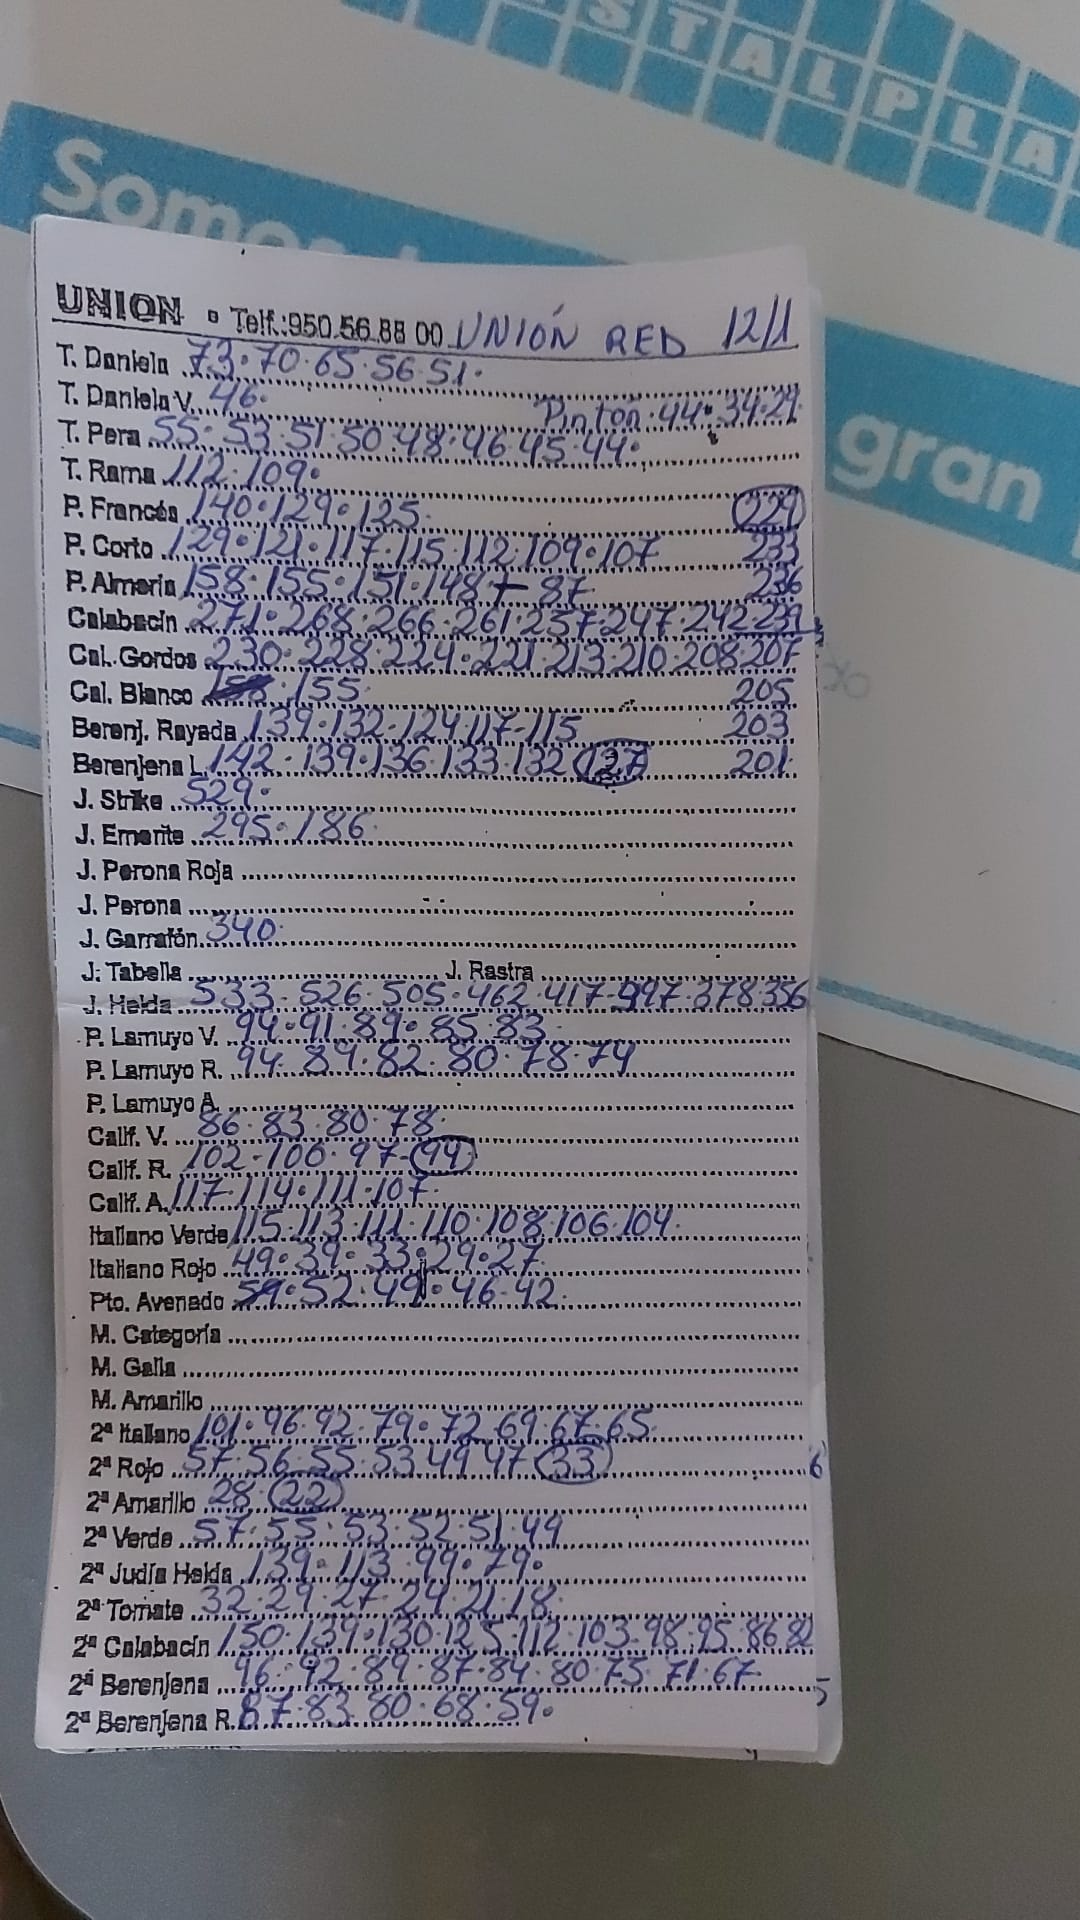 STALPLA
Somos
gran
UNION Telf.:950.56.88 00 UNIÓN RED 12/1
T. Daniela 73·70·65·56·51·
T. Daniela V. 46· Pinton·44·34·29·
T. Pera 55·53·51·50·48·46·45·44·
T. Rama 112·109·
P. Francés 140·129·125· 229
P. Corto 129·121·117·115·112·109·107 233
P. Almería 158·155·151·148+87 236
Calabacín 271·268·266·261·257·247·242·239
Cal. Gordos 230·228·224·221·213·210·208·207
Cal. Blanco 158·155· 205
Berenj. Rayada 139·132·124·117-115 203
Berenjena L. 142·139·136·133·132 127 201·
J. Strike 529·
J. Emerite 295·186·
J. Perona Roja
J. Perona
J. Garrafón 340·
J. Tabella J. Rastra
J. Helda 533·526·505·462·417-397·378·356
P. Lamuyo V. 94·91·89·85·83·
P. Lamuyo R. 94·89·82·80·78·74
P. Lamuyo A.
Calif. V. 86·83·80·78·
Calif. R. 102-100·97-94
Calif. A. 117·114·111·107·
Italiano Verde 115·113·111·110·108·106·104·
Italiano Rojo 49·39·33·29·27·
Pto. Avenado 59·52·49·46·42·
M. Categoría
M. Galia
M. Amarillo
2ª Italiano 101·96·92·79·72·69·67·65·
2ª Rojo 57·56·55·53·49·47·33
2ª Amarillo 28·22
2ª Verde 57·55·53·52·51·49
2ª Judía Helda 139·113·99·79·
2ª Tomate 32·29·27·24·21·18·
2ª Calabacín 150·139·130·125·112·103-98·95·86·82
2ª Berenjena 96·92·89·87·84·80·75·71·67·
2ª Berenjena R. 87·83·80·68·59·